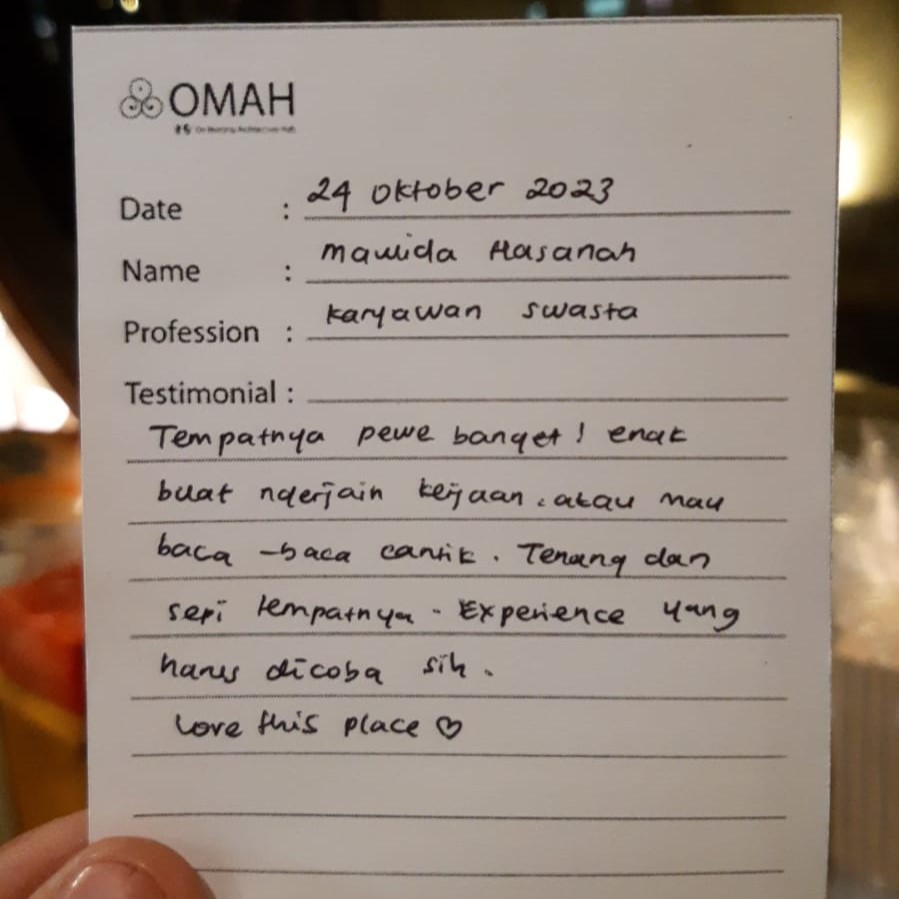 OMAH
Date : 24 Oktober 2023
Name : Mawida Hasanah
Profession : Karyawan Swasta
Testimonial :
Tempatnya pewe banget! enak
buat ngerjain kerjaan. atau mau
baca-baca cantik. Tenang dan
sepi tempatnya. Experience yang
harus dicoba sih.
Love this place ♡